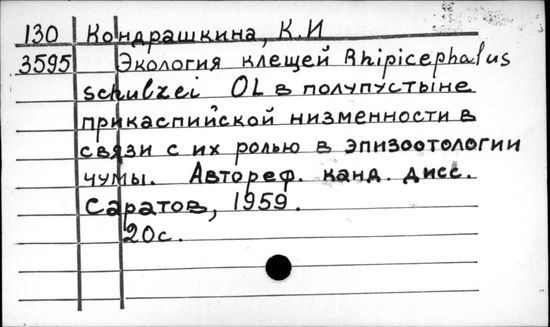 130 Кондрашкина, К.И
3595 Экология клещей Rhipicephalus
schulzei OL в полупустыне
прикаспийской низменности в
связи с их ролью в эпизоотологии
чумы. Автореф. канд. дисс.
Саратов, 1959.
20с.